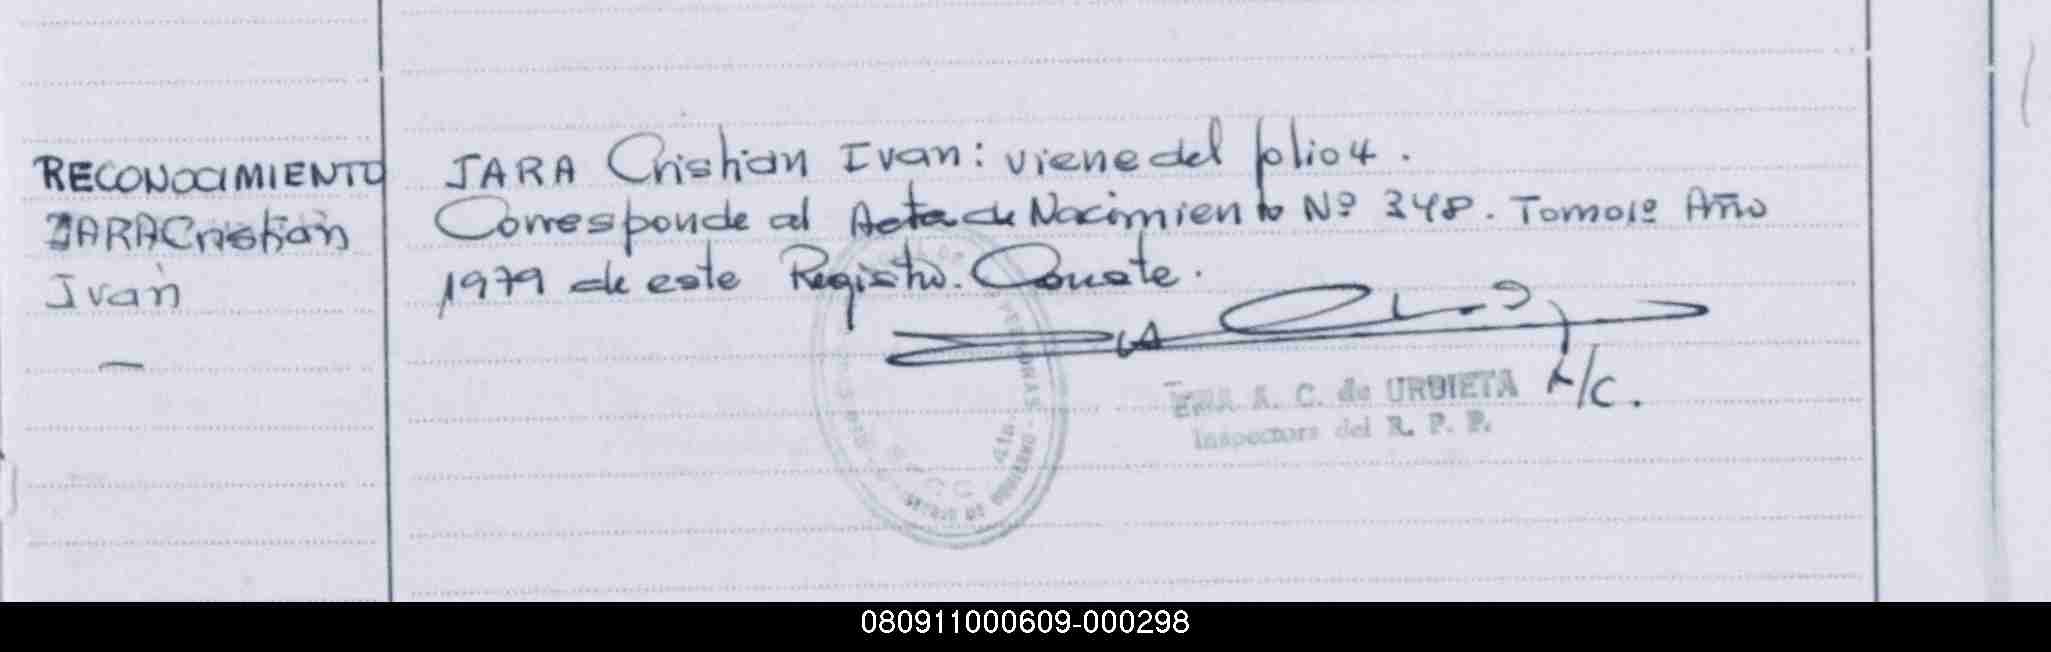 RECONOCIMIENTO
JARA Cristian
Ivan
JARA Cristian Ivan: viene del folio 4.
Corresponde al Acta de Nacimiento Nº 348. Tomo 1º Año
1979 de este Registro. Conste.
A/C.
A. C. de URBIETA
Inspectora del R. P. P.
080911000609-000298